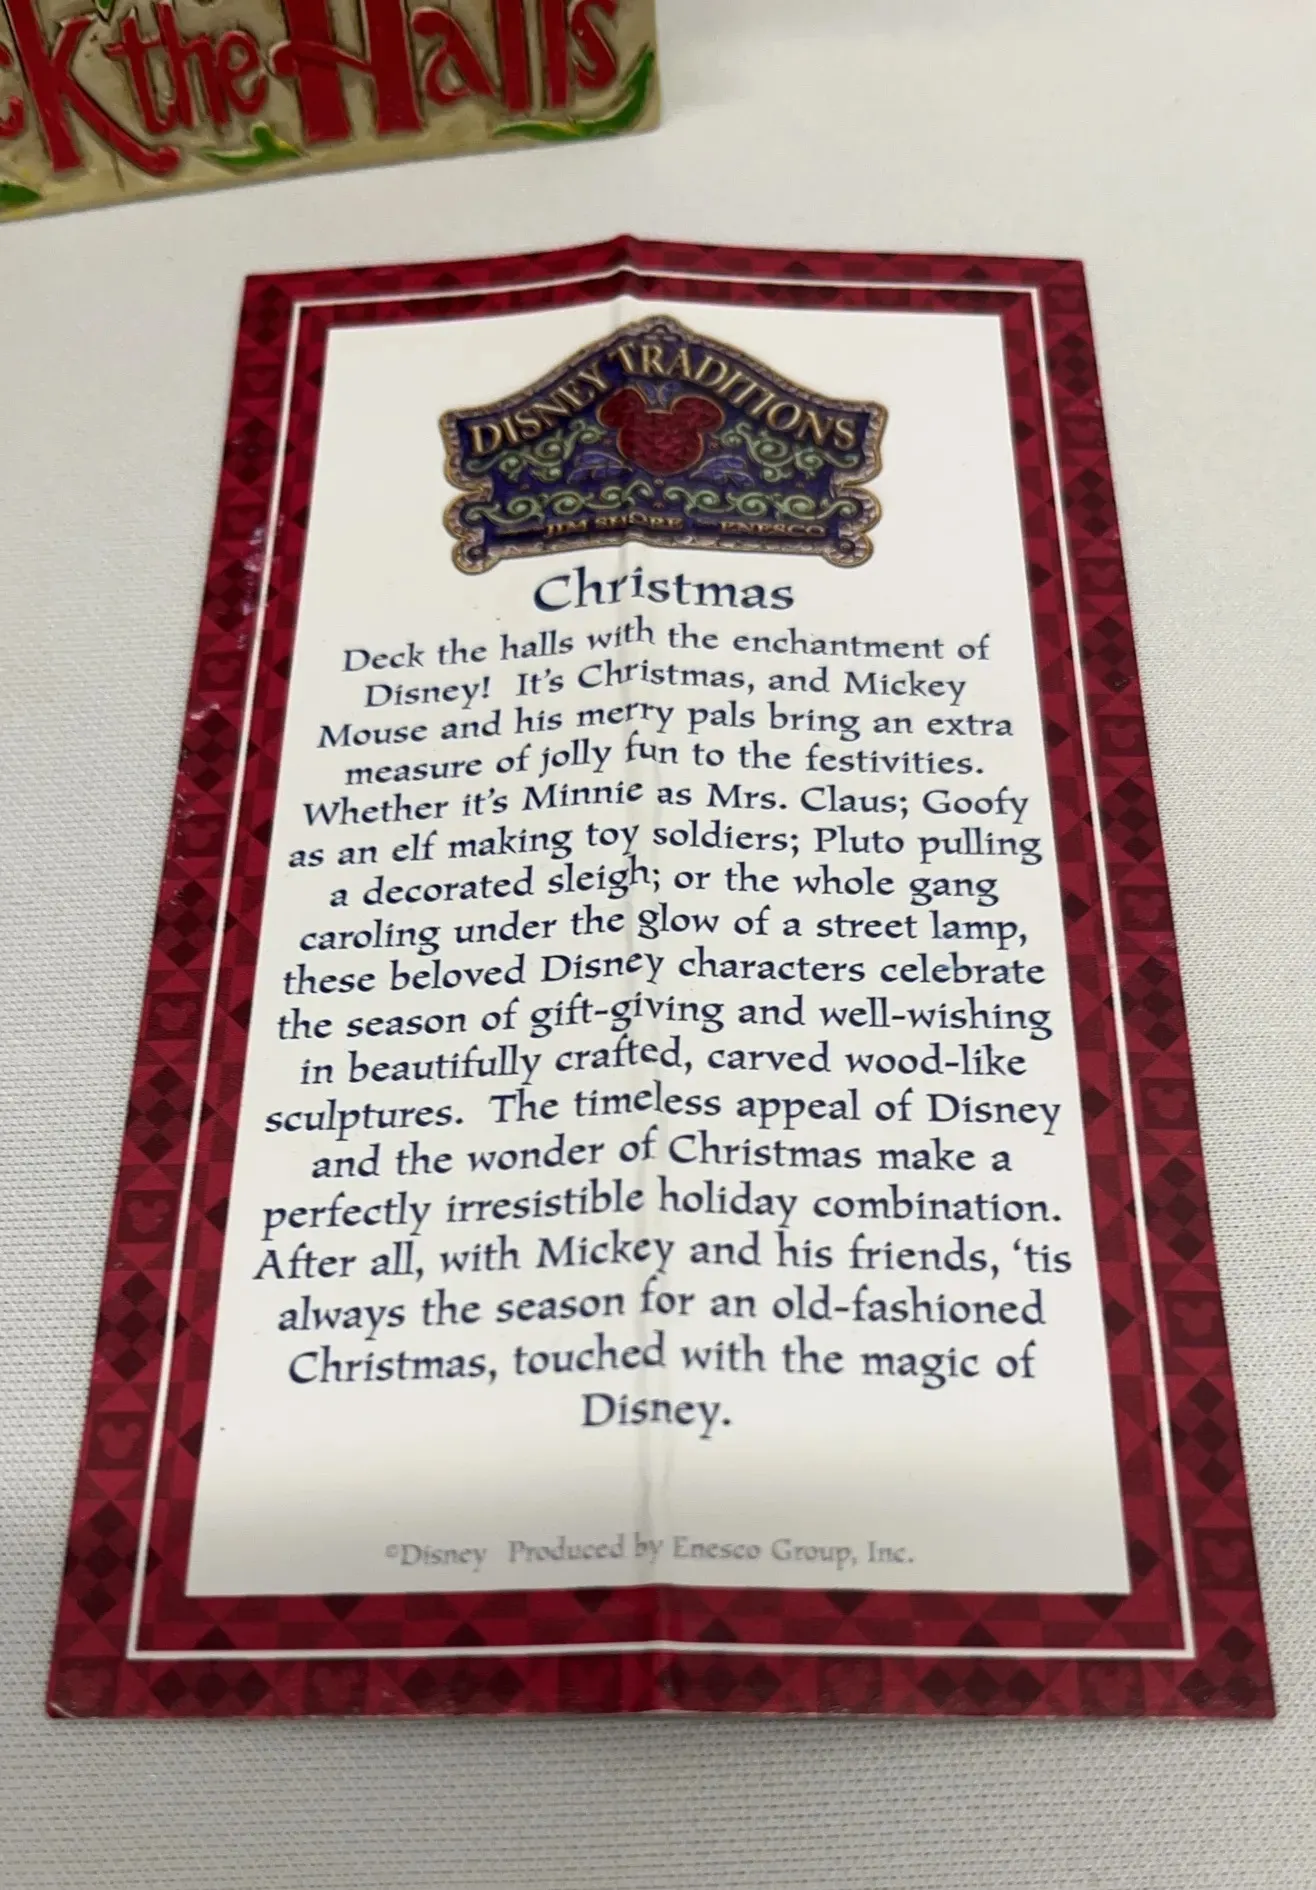 ck the Halls
DISNEY TRADITIONS
JIM SHORE ENESCO
Christmas
Deck the halls with the enchantment of
Disney! It's Christmas, and Mickey
Mouse and his merry pals bring an extra
measure of jolly fun to the festivities.
Whether it's Minnie as Mrs. Claus; Goofy
as an elf making toy soldiers; Pluto pulling
a decorated sleigh; or the whole gang
caroling under the glow of a street lamp,
these beloved Disney characters celebrate
the season of gift-giving and well-wishing
in beautifully crafted, carved wood-like
sculptures. The timeless appeal of Disney
and the wonder of Christmas make a
perfectly irresistible holiday combination.
After all, with Mickey and his friends, ‘tis
always the season for an old-fashioned
Christmas, touched with the magic of
Disney.
©Disney Produced by Enesco Group, Inc.